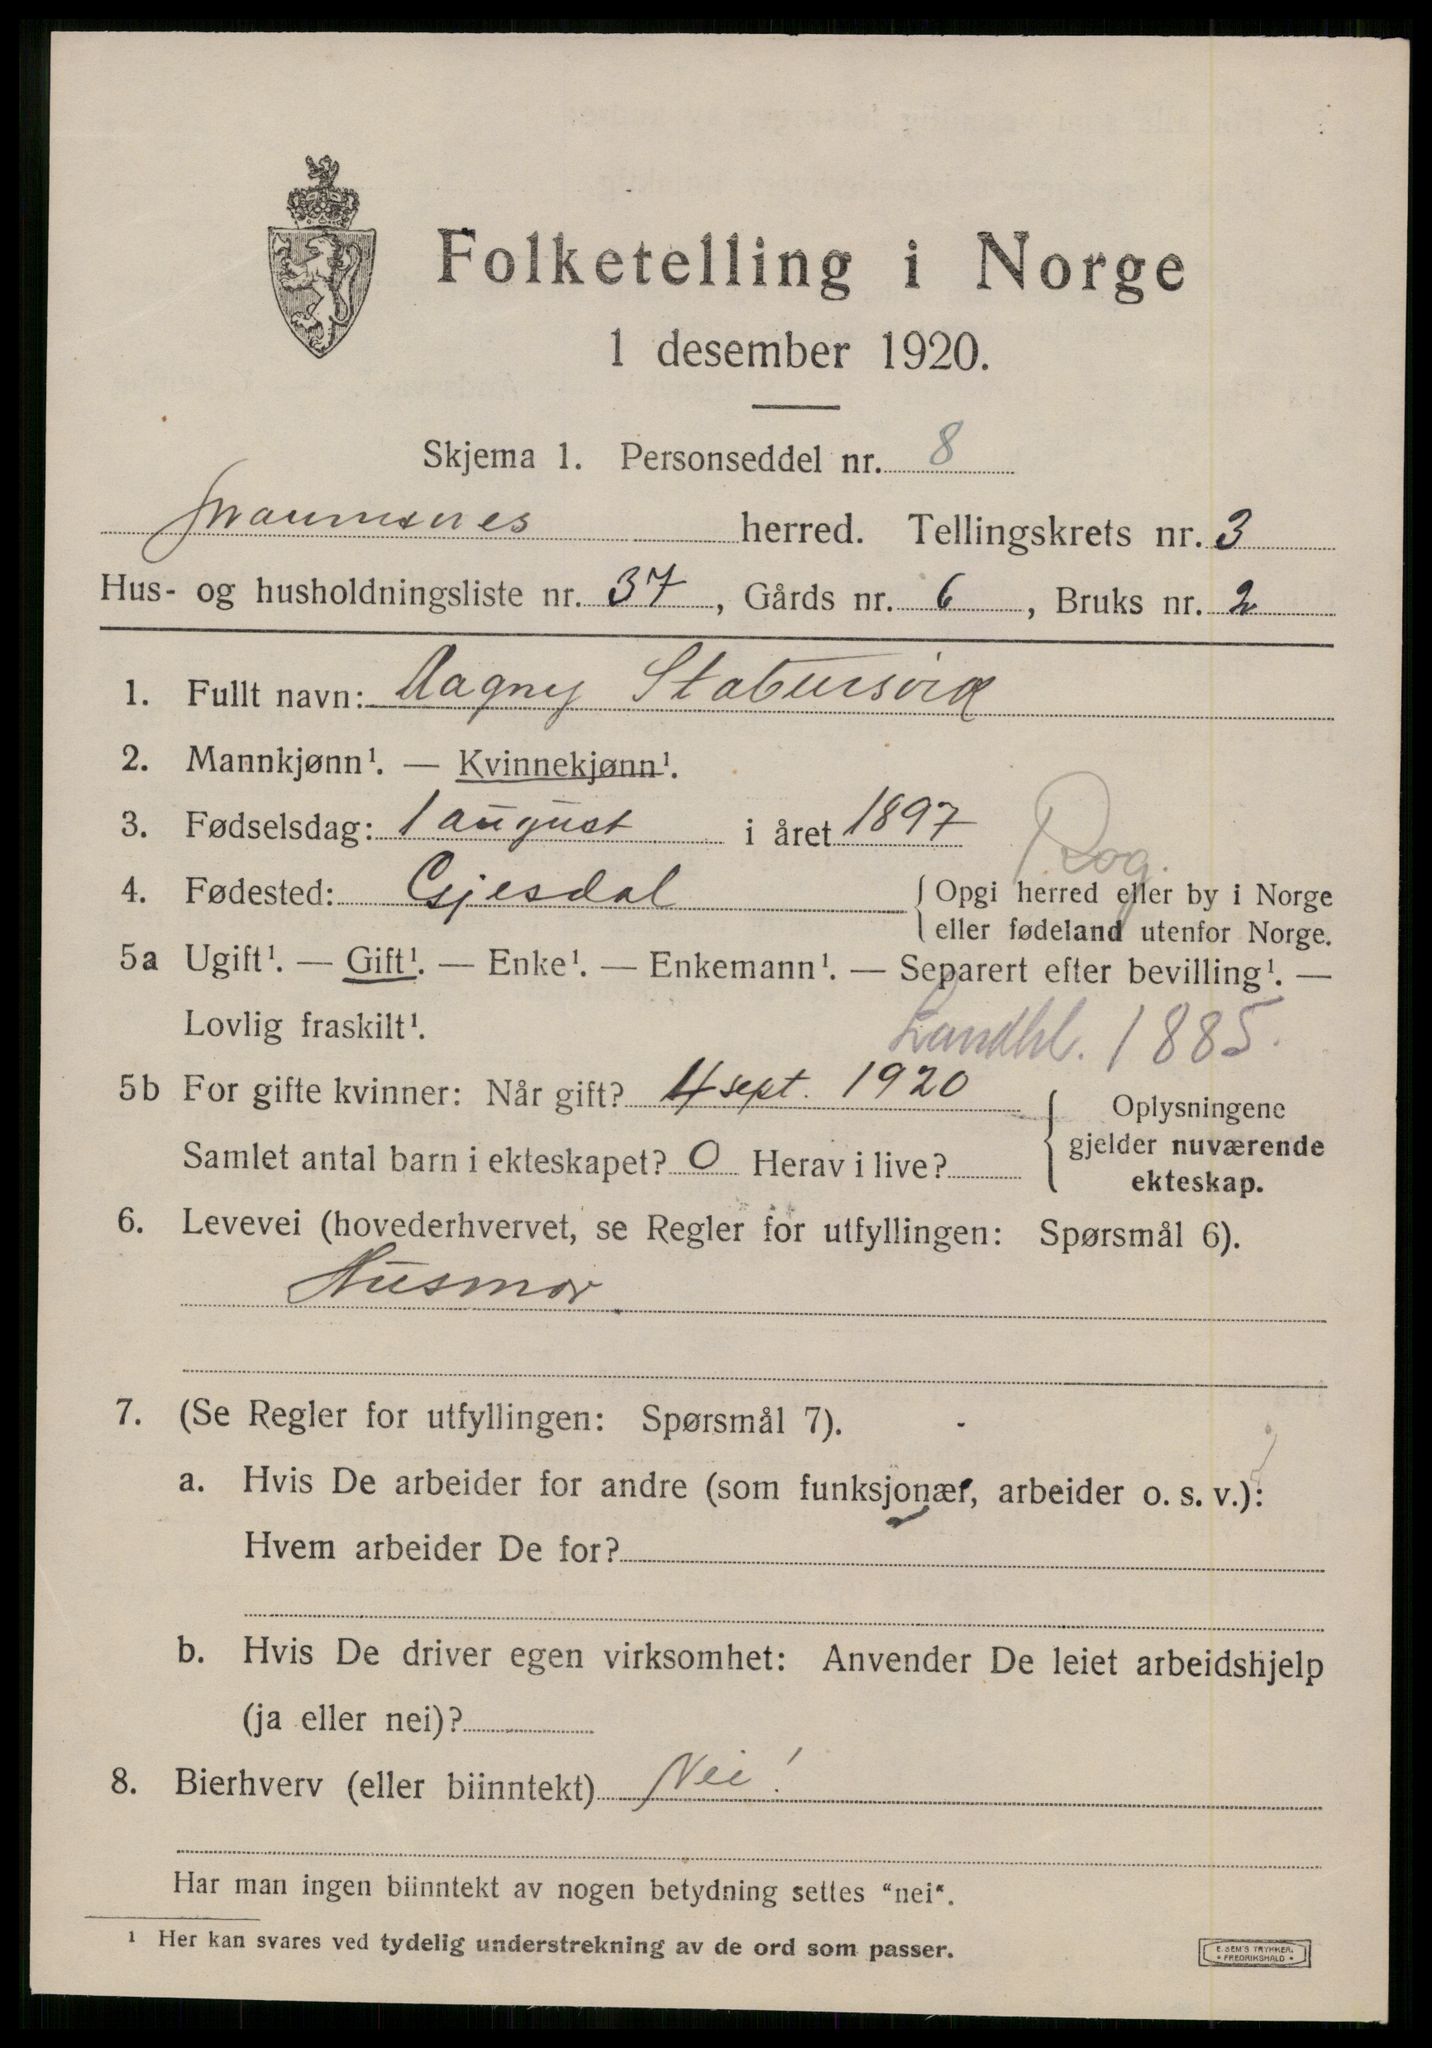 Folketelling i Norge
1 desember 1920.
Skjema 1. Personseddel nr. 8
Straumsnes herred. Tellingskrets nr. 3
Hus- og husholdningsliste nr. 37, Gårds nr. 6, Bruks nr. 2
1. Fullt navn: Magny Stabursvik
2. Mannkjønn¹. — Kvinnekjønn¹.
3. Fødselsdag: 1 august i året 1897
Rog.
4. Fødested: Gjesdal { Opgi herred eller by i Norge
eller fødeland utenfor Norge.
5a Ugift¹. — Gift¹. — Enke¹. — Enkemann¹. — Separert efter bevilling¹. —
Lovlig fraskilt¹.
Landhl. 1885.
5b For gifte kvinner: Når gift? 4 sept. 1920 { Oplysningene
gjelder nuværende
ekteskap.
Samlet antal barn i ekteskapet? 0 Herav i live?
6. Levevei (hovederhvervet, se Regler for utfyllingen: Spørsmål 6).
Husmor
7. (Se Regler for utfyllingen: Spørsmål 7).
a. Hvis De arbeider for andre (som funksjonær, arbeider o. s. v.):
Hvem arbeider De for?
b. Hvis De driver egen virksomhet: Anvender De leiet arbeidshjelp
(ja eller nei)?
8. Bierhverv (eller biinntekt) Nei!
Har man ingen biinntekt av nogen betydning settes "nei".
¹ Her kan svares ved tydelig understrekning av de ord som passer.
E. SEM'S TRYKKERI
• FREDRIKSHALD •